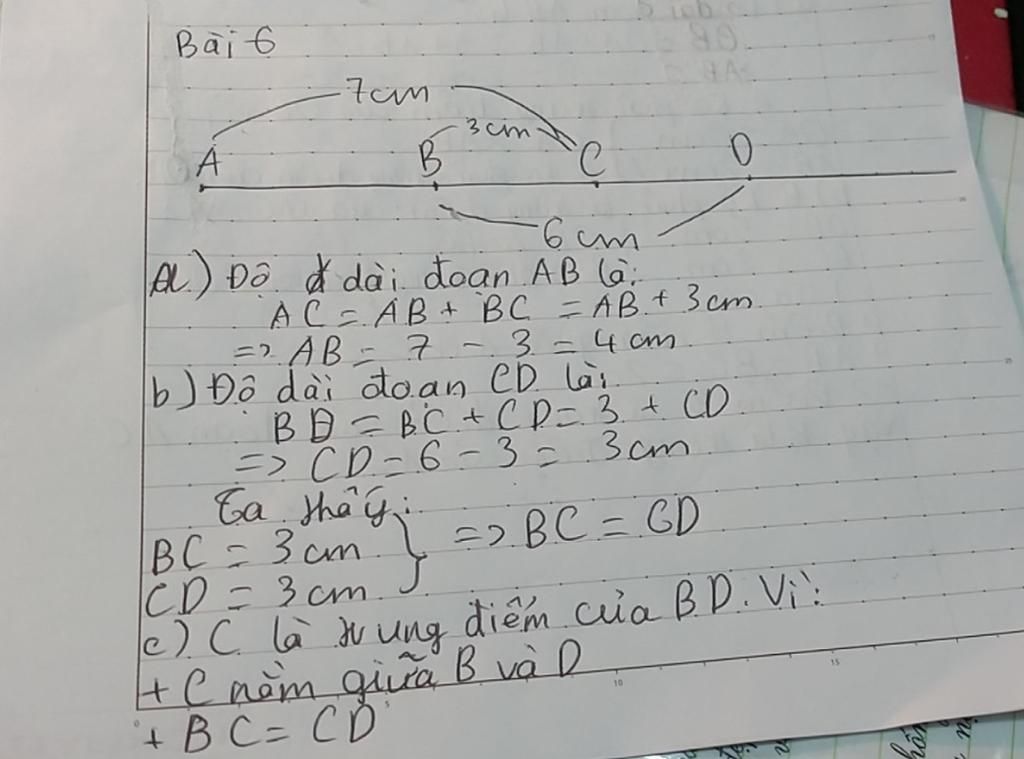 Bài 6
7cm
3cm
A B C D
6cm
a) Độ dài đoạn AB là:
AC = AB + BC = AB + 3cm
=> AB = 7 - 3 = 4cm
b) Độ dài đoạn CD là:
BD = BC + CD = 3 + CD
=> CD = 6 - 3 = 3cm
Ta thấy:
BC = 3cm } => BC = CD
CD = 3cm
c) C là trung điểm của BD. Vì:
+ C nằm giữa B và D
+ BC = CD
10 15